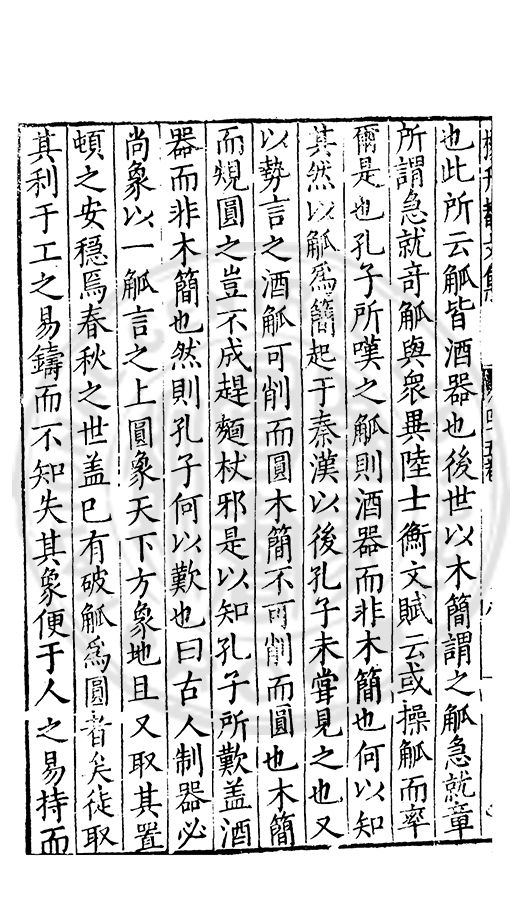 也此所云觚皆酒器也後世以木簡謂之觚急就章
所謂急就奇觚與衆異陸士衡文賦云或操觚而率
爾是也孔子所嘆之觚則酒器而非木簡也何以知
其然以觚爲簡起于秦漢以後孔子未嘗見之也又
以勢言之酒觚可削而圓木簡不可削而圓也木簡
而規圓之豈不成趕麵杖邪是以知孔子所歎盖酒
器而非木簡也然則孔子何以歎也曰古人制器必
尚象以一觚言之上圓象天下方象地且又取其置
頓之安穩焉春秋之世盖已有破觚爲圓者矣徒取
其利于工之易鑄而不知失其象便于人之易持而